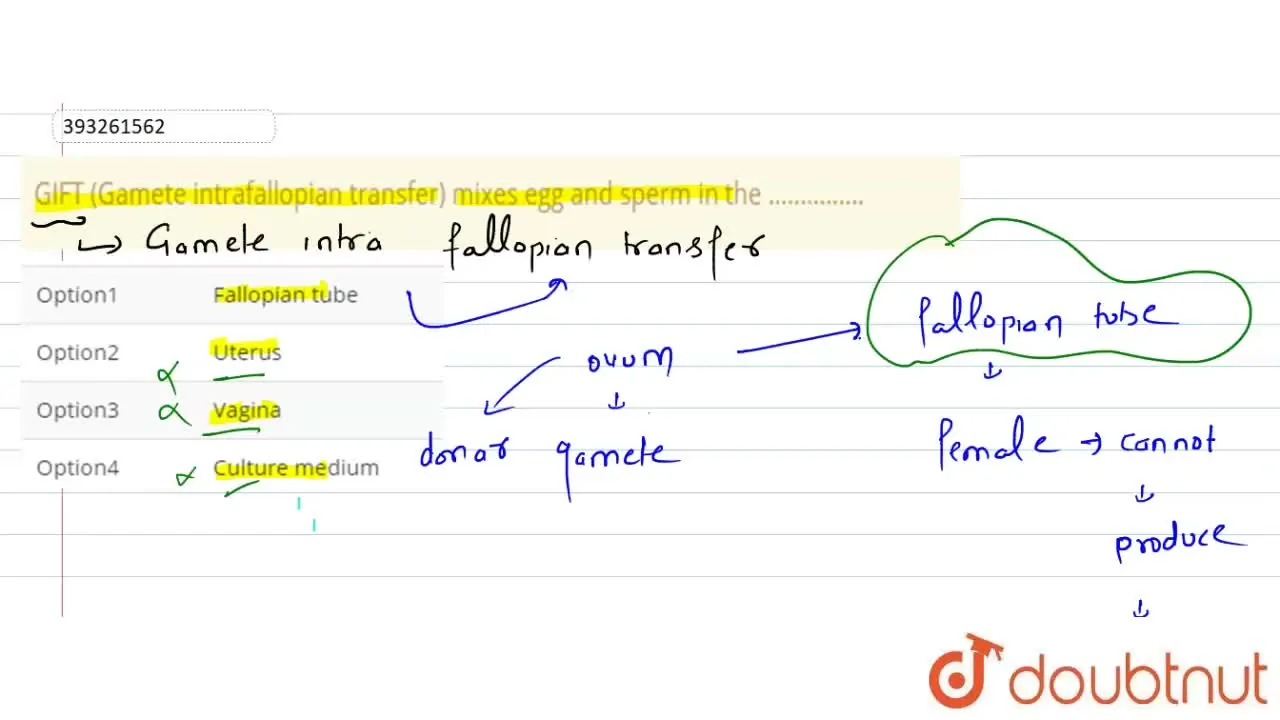 393261562
GIFT (Gamete intrafallopian transfer) mixes egg and sperm in the ...............
↳ Gamete intra fallopian transfer
Option1 Fallopian tube
fallopian tube
Option2 Uterus
ovum
Option3 Vagina
donar gamete
female → cannot
Option4 Culture medium
produce
doubtnut